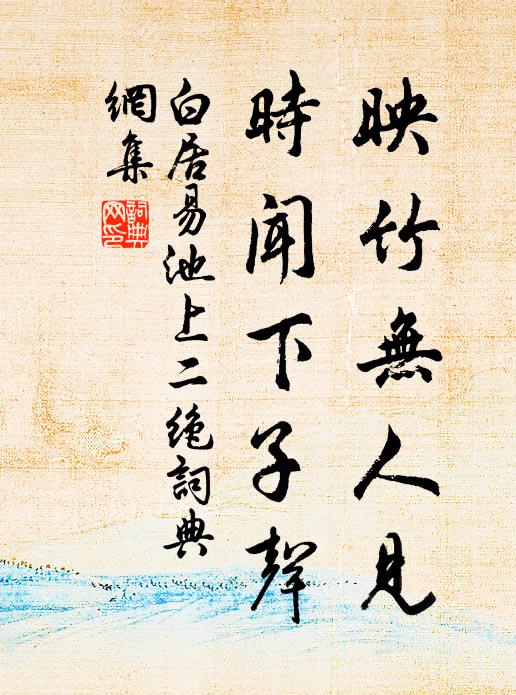 映竹無人見
時聞下子聲
白居易池上二绝詞典
網集
詞典网印